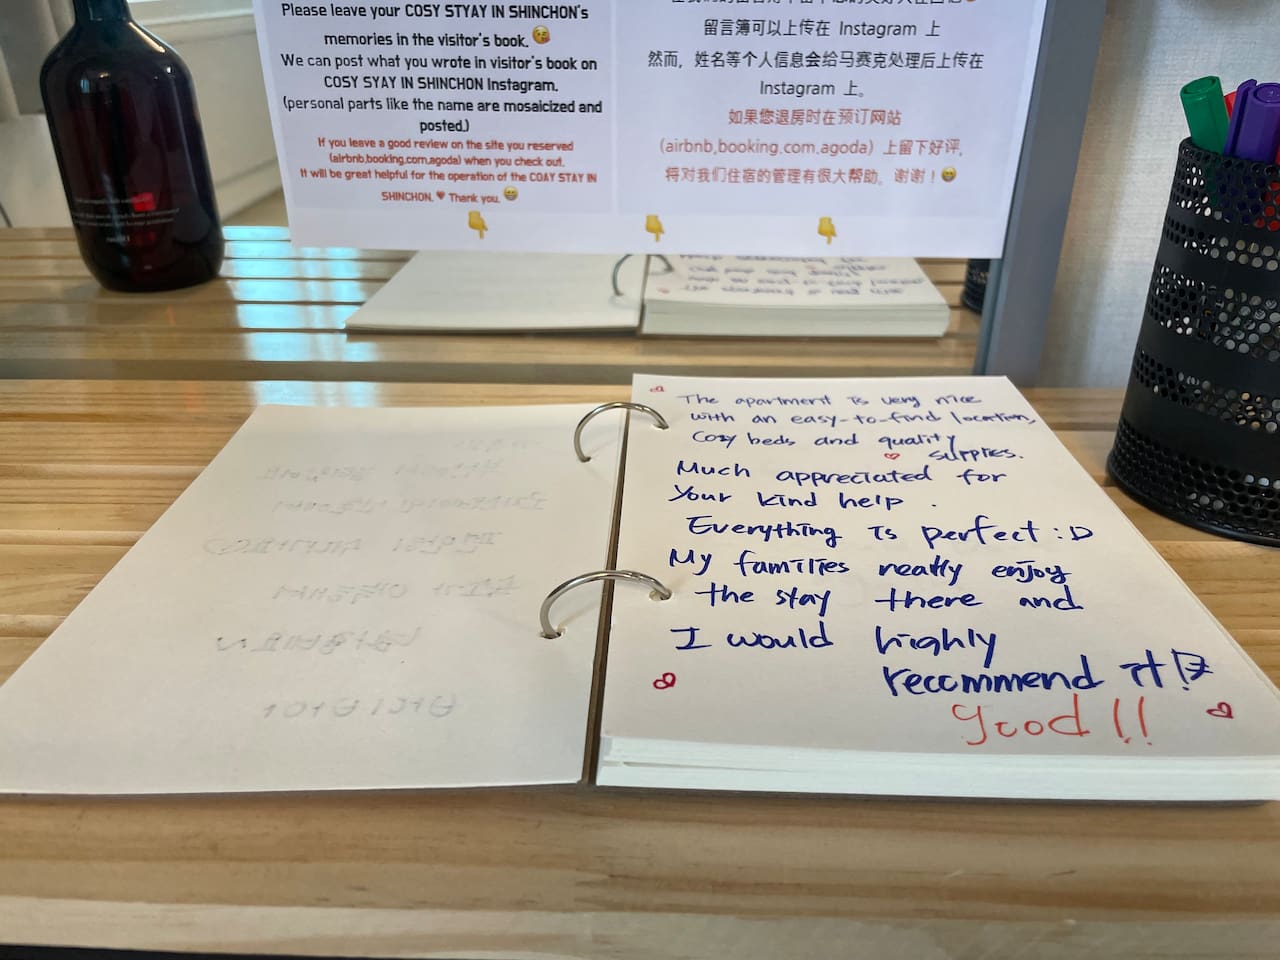 Please leave your COSY STYAY IN SHINCHON's
memories in the visitor's book.😘
We can post what you wrote in visitor's book on
COSY SYAY IN SHINCHON Instagram.
(personal parts like the name are mosaicized and
posted.)
If you leave a good review on the site you reserved
(airbnb,booking.com,agoda) when you check out.
It will be great helpful for the operation of the COAY STAY IN
SHINCHON.♥ Thank you.😄
留言簿可以上传在 Instagram 上
然而，姓名等个人信息会给马赛克处理后上传在
Instagram 上。
如果您退房时在预订网站
(airbnb,booking.com,agoda) 上留下好评,
将对我们住宿的管理有很大帮助。谢谢！😄
The apartment is very nice
with an easy-to-find location,
Cozy beds and quality
supplies.
Much appreciated for
your kind help.
Everything is perfect :D
My families really enjoy
the stay there and
I would highly
recommend it!
good!!